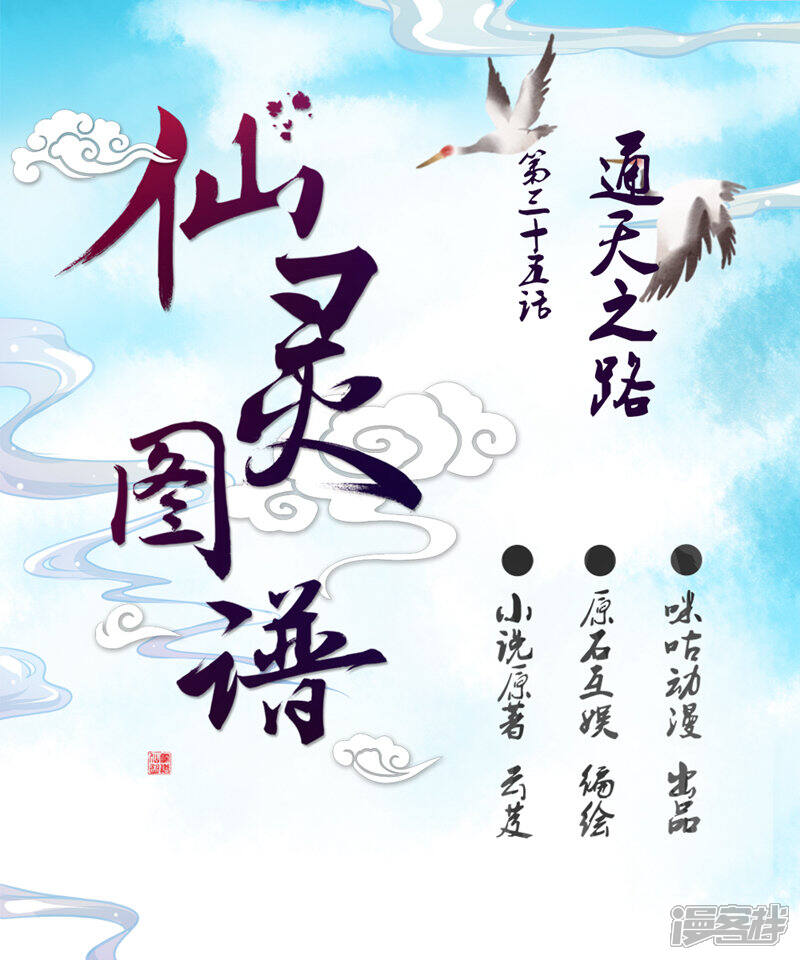 仙灵图谱
通天之路
第三十五话
咪咕动漫 出品
原石互娱 编绘
小说原著 云芨
漫客栈